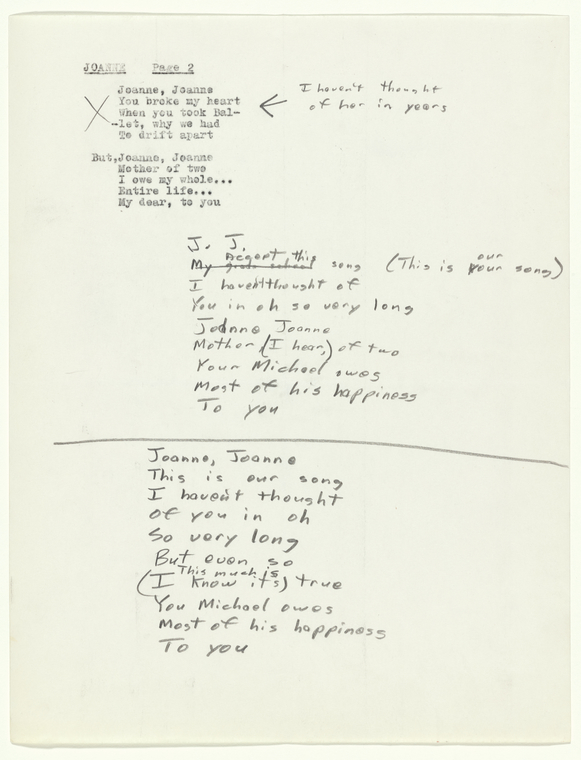 JOANNE Page 2
Joanne, Joanne
You broke my heart
When you took Bal-
-let, why we had
To drift apart
I haven't thought
of her in years
But,Joanne, Joanne
Mother of two
I owe my whole...
Entire life...
My dear, to you
J. J.
Accept this
My grade school song (This is your song)
our
I haven't thought of
You in oh so very long
Joanne Joanne
Mother (I hear,) of two
Your Michael owes
Most of his happiness
To you
Joanne, Joanne
This is our song
I haven't thought
of you in oh
So very long
But even so
This much is
(I know it's) true
You Michael owes
Most of his happiness
To you